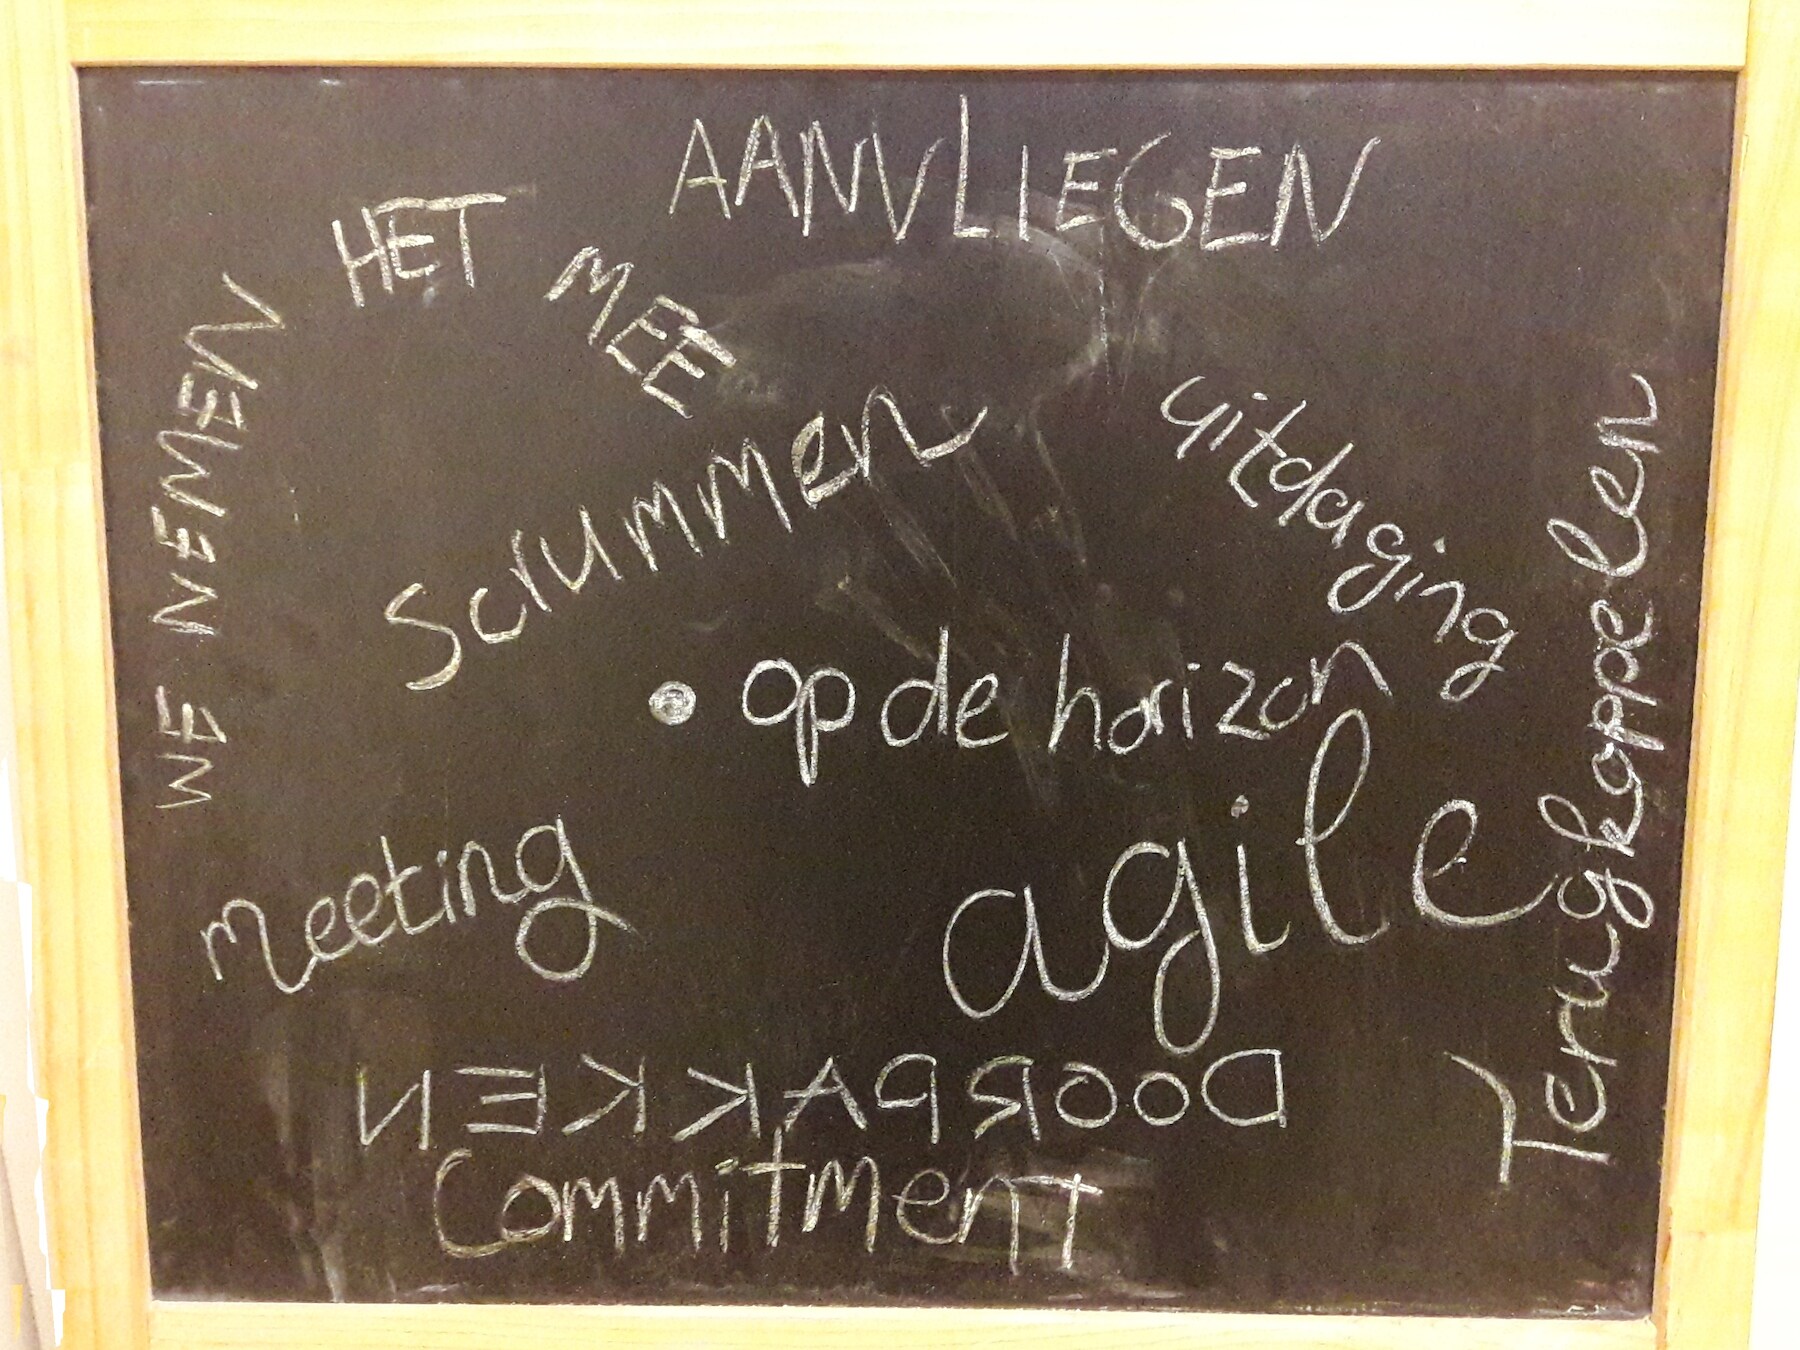 AANVLIEGEN
WE NEMEN HET MEE
Scrummen
uitdaging
• op de horizon
Terugkoppelen
meeting
agile
DOORPAKKEN
Commitment